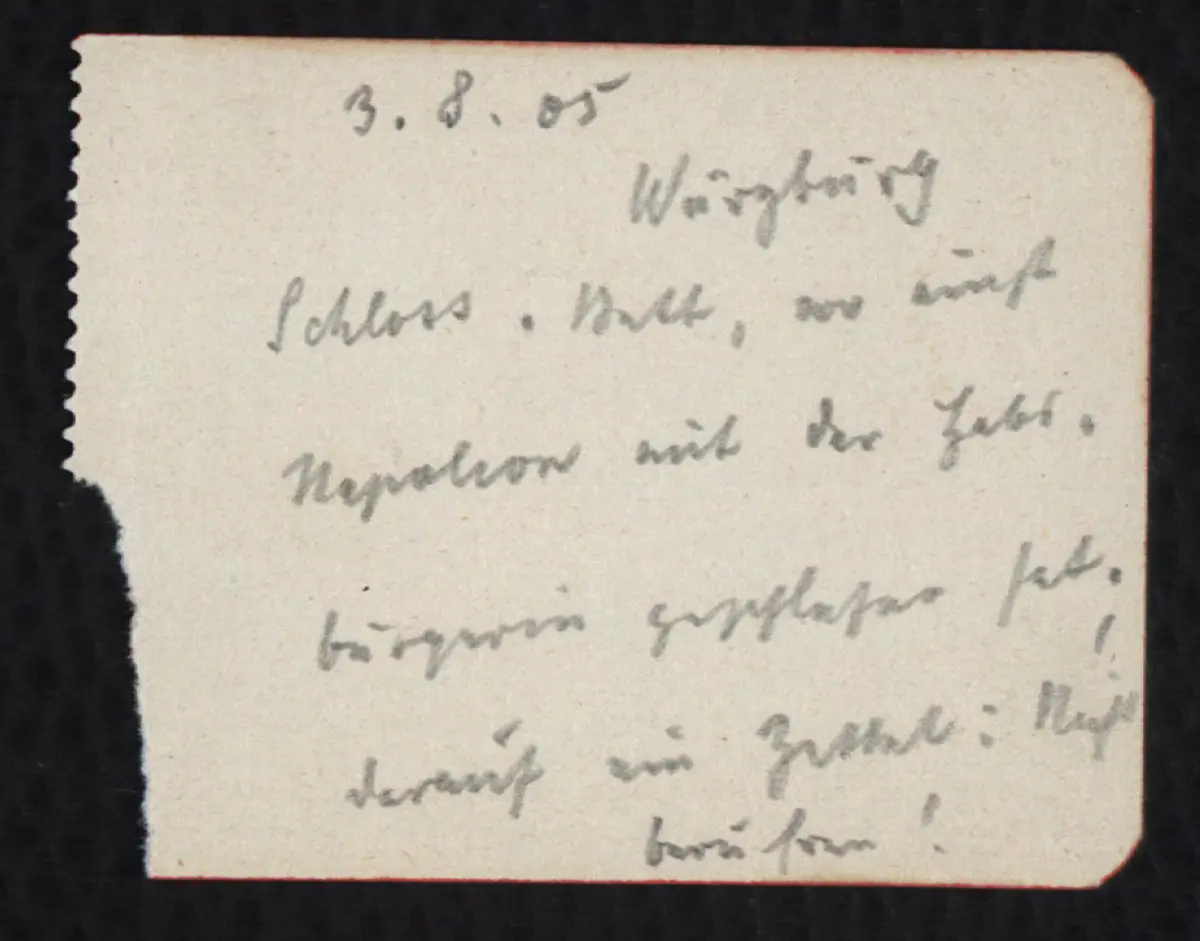 3. 8. 05
Würzburg
Schloss. Bett, wo einst
Napoleon mit der Habs.
burgerin geschlafen hat,
darauf ein Zettel: Nicht
berühren!